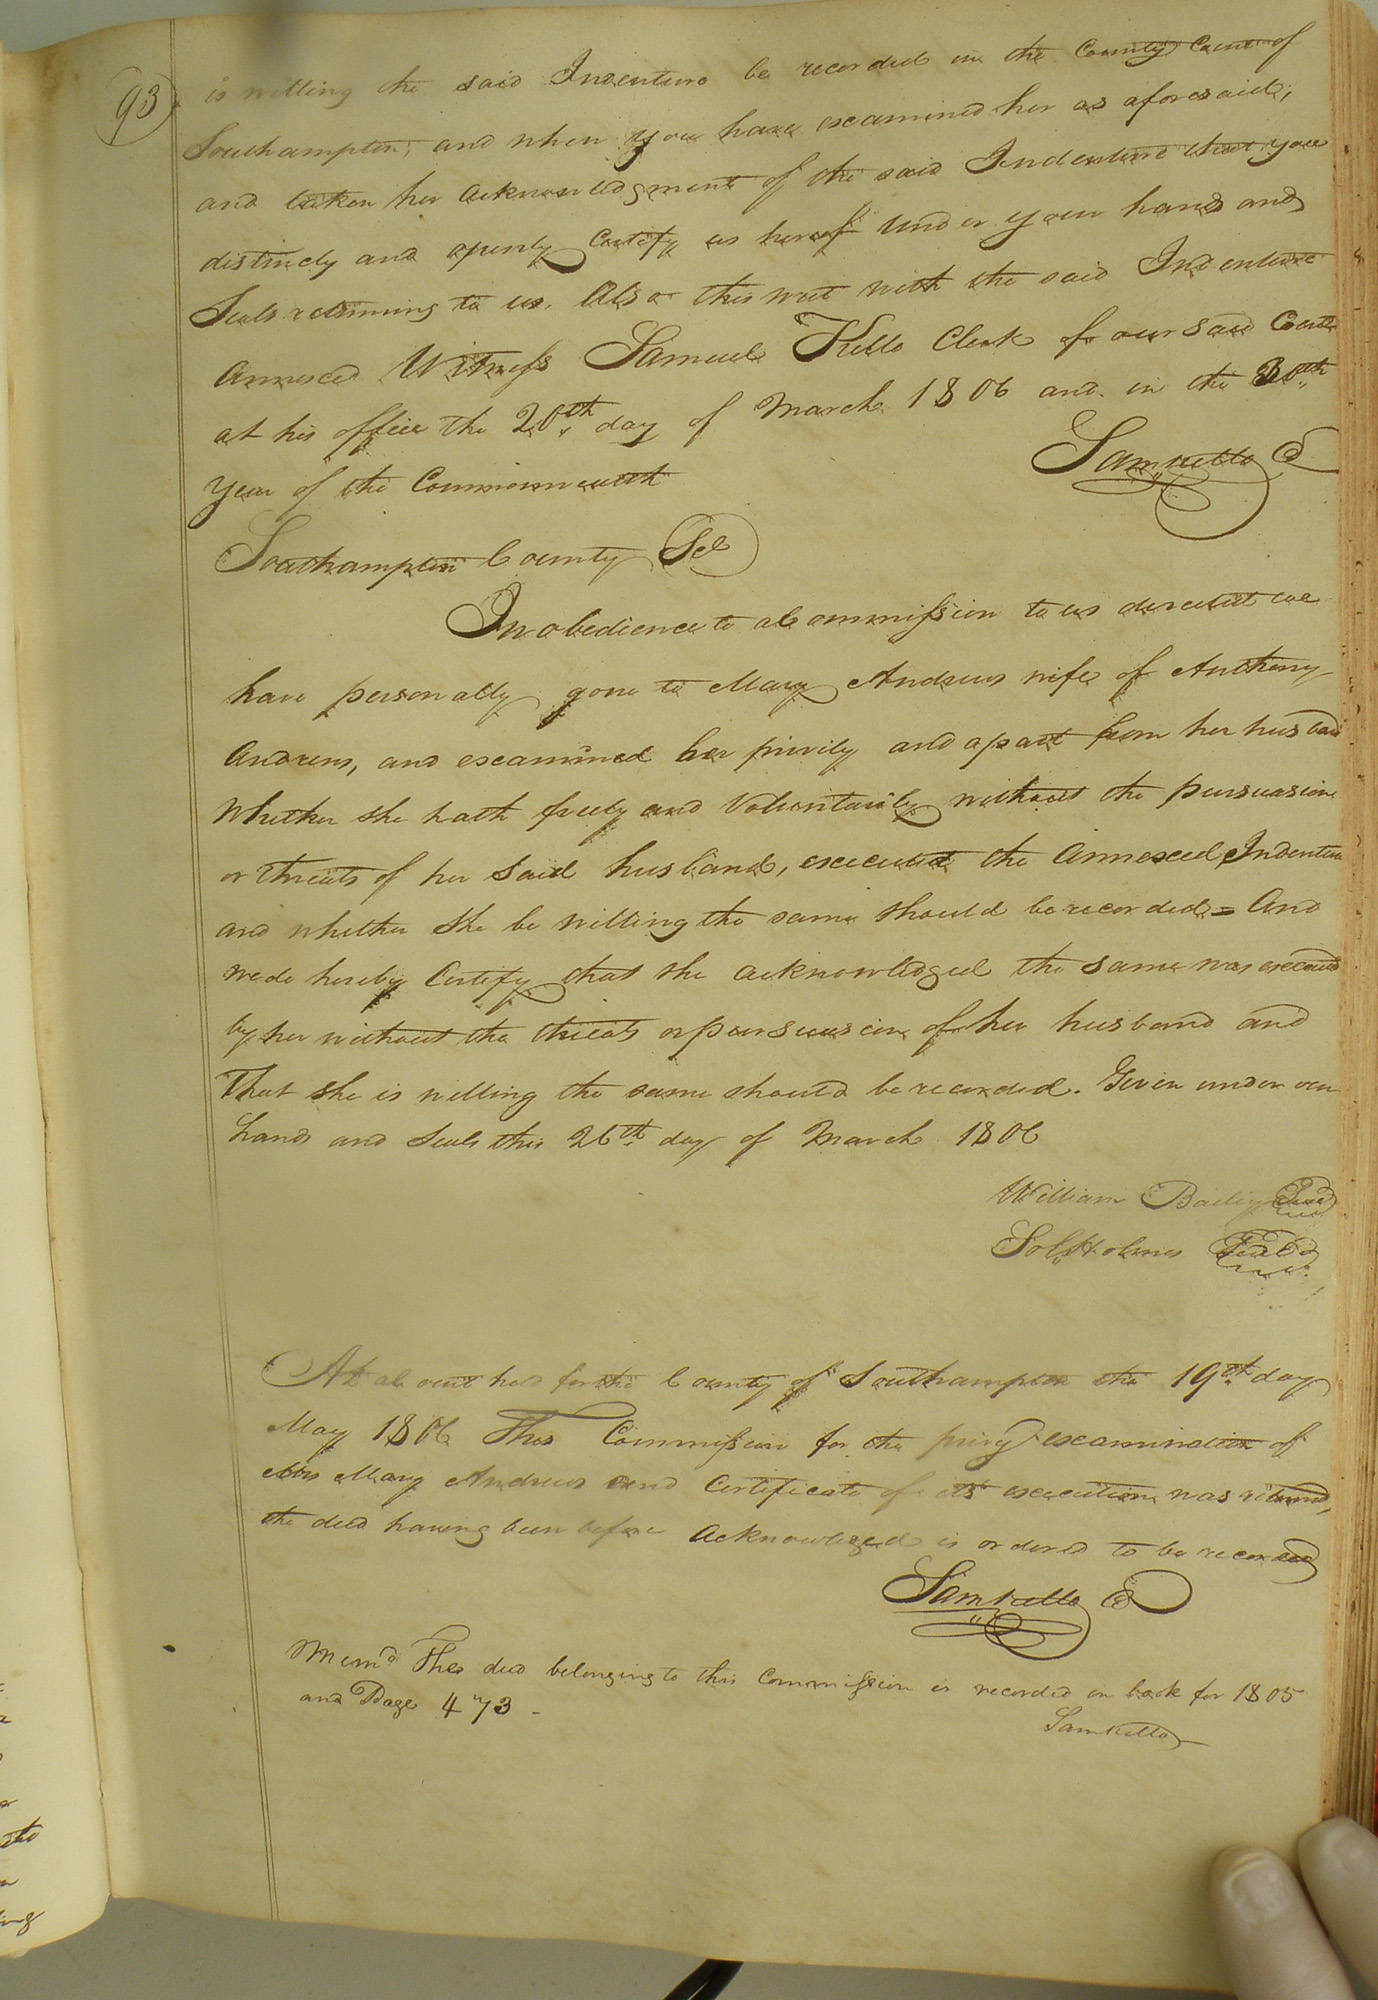 93
is willing the said Indenture be recorded in the County Court of
Southampton; and when you have examined her as aforesaid,
and taken her acknowledgment of the said Indenture that you
distinctly and openly Certify us hereof under your hands and
Seals returning to us. Also this writ with the said Indenture
annexed Witness Samuel Kello Clerk of our said Court
at his office the 20th day of March 1806 and in the 30th
Year of the Commonwealth
Sam Kello C
Southampton County Sct
In obedience to a Commission to us directed we
have personally gone to Mary Andrews wife of Anthony
Andrews, and examined her privily and apart from her husband
Whether she hath freely and Voluntarily without the persuasion
or threats of her said husband, executed the annexed Indenture
and whether She be willing the same should be recorded = And
we do hereby Certify that she acknowledged the same was executed
by her without the threats or persuasion of her husband and
That she is willing the same should be recorded. Given under our
hands and Seals this 26th day of March 1806
William Bailey Seal
Sol Holmes Seal
At a Court held for the County of Southampton the 19th day
May 1806 This Commission for the privy examination of
Mrs Mary Andrews and Certificate of its execution was returned,
the deed having been before acknowledged is ordered to be recorded
Sam Kello C
Memd The deed belonging to this Commission is recorded in book for 1805
and Page 473 -
Sam Kello